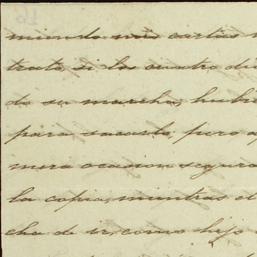 miendo mis cartas
trato, á los cuatro di
de su marcha, hubi
para sacarlo, pero a
mera ocasion segura
la copia, mientras el
cha de ir, como hijo